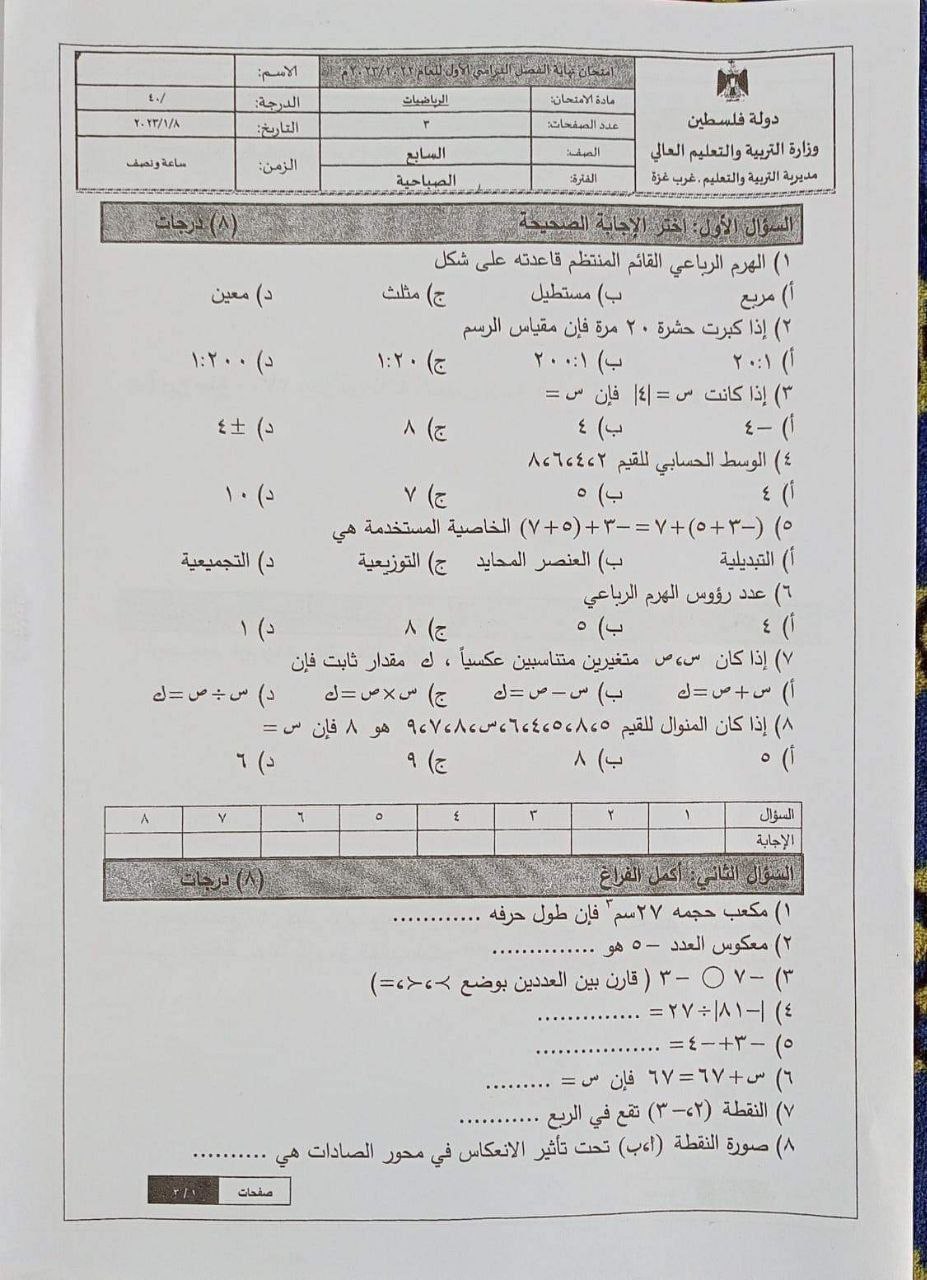 دولة فلسطين
وزارة التربية والتعليم العالي
مديرية التربية والتعليم . غرب غزة
امتحان نهاية الفصل الدراسي الأول للعام ٢٠٢٣/٢٠٢٢م
الاسم:
مادة الامتحان: الرياضيات
الدرجة: /٤٠
عدد الصفحات: ٣
التاريخ: ٢٠٢٣/١/٨
الصف: السابع
الزمن: ساعة ونصف
الفترة: الصباحية
السؤال الأول: اختر الإجابة الصحيحة (٨) درجات
١) الهرم الرباعي القائم المنتظم قاعدته على شكل
أ) مربع ب) مستطيل ج) مثلث د) معين
٢) إذا كبرت حشرة ٢٠ مرة فإن مقياس الرسم
أ) ٢٠:١ ب) ٢٠٠:١ ج) ١:٢٠ د) ١:٢٠٠
٣) إذا كانت س = |٤| فإن س =
أ) –٤ ب) ٤ ج) ٨ د) ±٤
٤) الوسط الحسابي للقيم ٨،٦،٤،٢
أ) ٤ ب) ٥ ج) ٧ د) ١٠
٥) (–٣+٥)+٧=–٣+(٥+٧) الخاصية المستخدمة هي
أ) التبديلية ب) العنصر المحايد ج) التوزيعية د) التجميعية
٦) عدد رؤوس الهرم الرباعي
أ) ٤ ب) ٥ ج) ٨ د) ١
٧) إذا كان س،ص متغيرين متناسبين عكسياً ، ك مقدار ثابت فإن
أ) س+ص=ك ب) س–ص=ك ج) س×ص=ك د) س÷ص=ك
٨) إذا كان المنوال للقيم ٥،٨،٥،٤،٦،س،٨،٧،٩ هو ٨ فإن س =
أ) ٥ ب) ٨ ج) ٩ د) ٦
السؤال ١ ٢ ٣ ٤ ٥ ٦ ٧ ٨
الإجابة
السؤال الثاني: أكمل الفراغ (٨) درجات
١) مكعب حجمه ٢٧سم٣ فإن طول حرفه ............
٢) معكوس العدد –٥ هو ..............
٣) –٧ ◯ –٣ ( قارن بين العددين بوضع >،<،=)
٤) |–٨١|÷٢٧= ..............
٥) –٣+–٤= .................
٦) س+٦٧=٦٧ فإن س = .........
٧) النقطة (٢،–٣) تقع في الربع ...........
٨) صورة النقطة (أ،ب) تحت تأثير الانعكاس في محور الصادات هي ..........
صفحات ٣/١